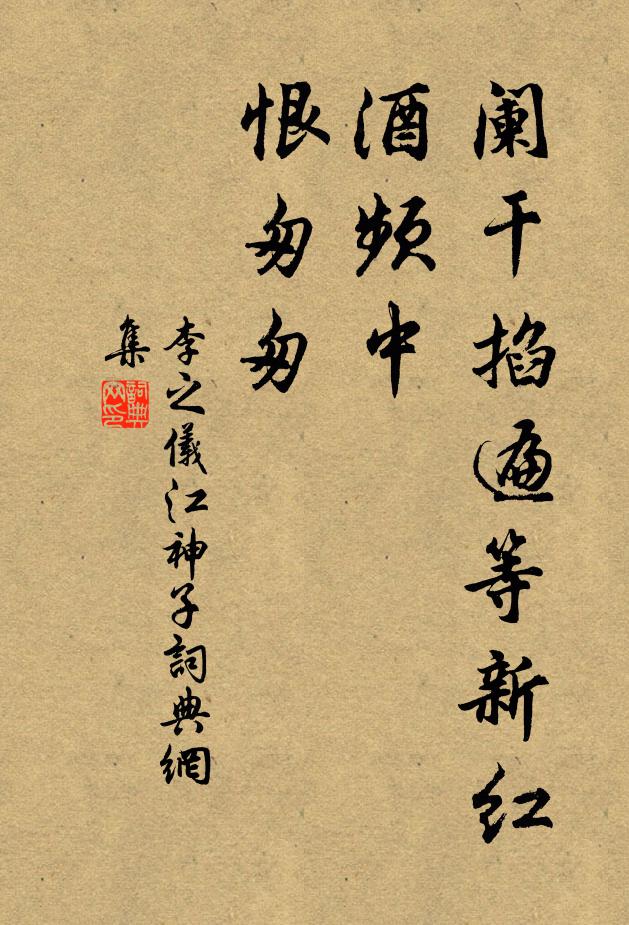 阑干掐遍等新红
酒频中
恨匆匆
李之儀江神子詞典網
集
詞典
网印